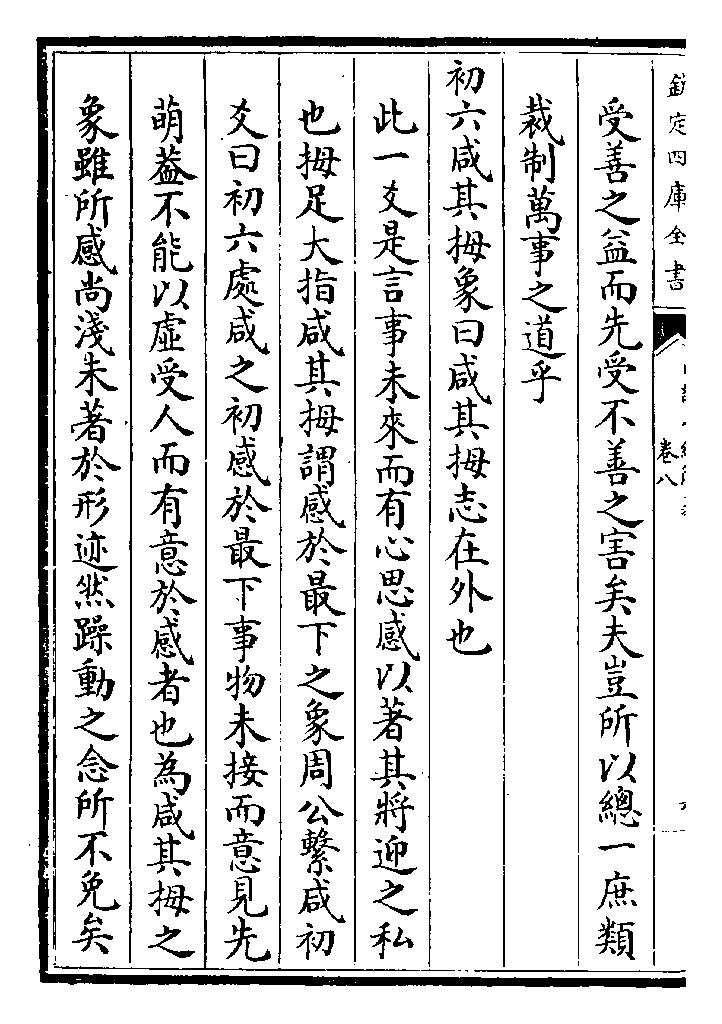 欽定四庫全書
卷八
受善之益而先受不善之害矣夫豈所以總一庶類
裁制萬事之道乎
初六咸其拇象曰咸其拇志在外也
此一爻是言事未來而有心思感以著其將迎之私
也拇足大指咸其拇謂感於最下之象周公繫咸初
爻曰初六處咸之初感於最下事物未接而意見先
萌葢不能以虛受人而有意於感者也為咸其拇之
象雖所感尚淺未著於形迹然躁動之念所不免矣